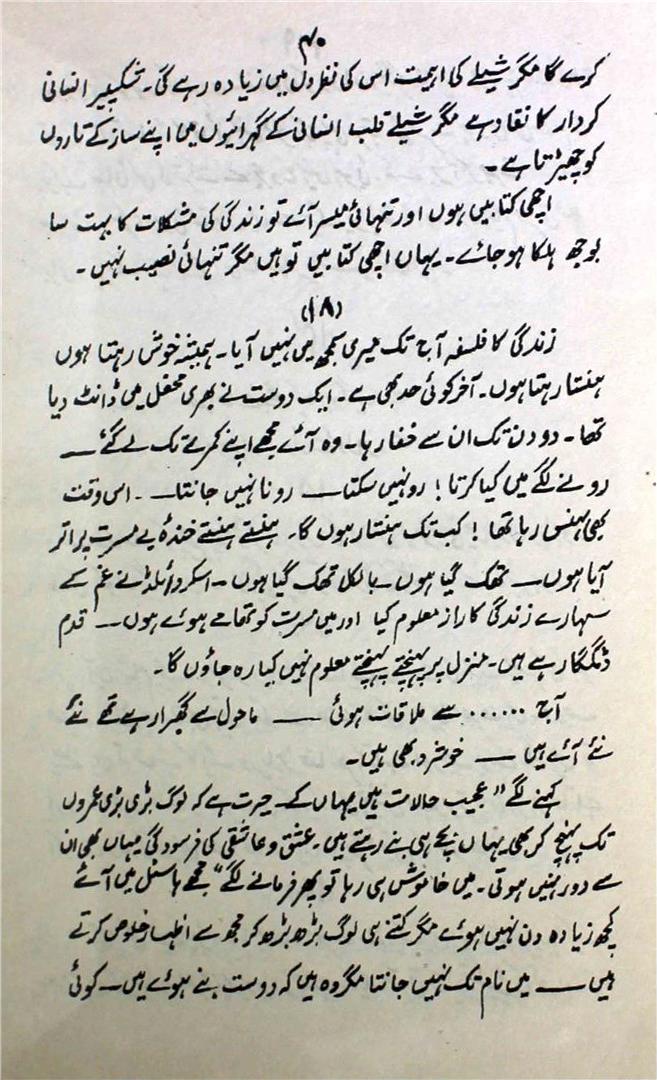 ۴۰
کرے گا مگر شیلے کی اہمیت اس کی نظروں میں زیادہ رہے گی۔ شکسپیر انسانی
کردار کا نقاد ہے مگر شیلے قلب انسانی کے گہرائیوں میں اپنے ساز کے تاروں
کو چھیڑتا ہے۔
اچھی کتابیں ہوں اور تنہائی میسر آئے تو زندگی کی مشکلات کا بہت سا
بوجھ ہلکا ہو جائے۔ یہاں اچھی کتابیں تو ہیں مگر تنہائی نصیب نہیں۔
(۱۸)
زندگی کا فلسفہ آج تک میری سمجھ میں نہیں آیا۔ ہمیشہ خوش رہتا ہوں
ہنستا رہتا ہوں۔ آخر کوئی حد بھی ہے۔ ایک دوست نے بھری محفل میں ڈانٹ دیا
تھا۔ دو دن تک ان سے خفا رہا۔ وہ آئے مجھے اپنے کمرے تک لے گئے، ــــ
رونے لگے میں کیا کرتا! رو نہیں سکتا ــــ رونا نہیں جانتا ــ۔ اس وقت
بھی ہنس رہا تھا! کب تک ہنستا رہوں گا۔ ہنستے ہنستے خندۂ بے مسرت پر اتر
آیا ہوں ــ تھک گیا ہوں ــ بالکل تھک گیا ہوں ــ اسکر وائلڈ نے غم کے
سہارے زندگی کا راز معلوم کیا اور میں مسرت کو تھامے ہوئے ہوں ــ قدم
ڈگمگا رہے ہیں۔ منزل پر پہنچتے پہنچتے معلوم نہیں کیا رہ جاؤں گا۔
آج ...... سے ملاقات ہوئی ــــ ماحول سے گھبرا رہے تھے نئے
نئے آئے ہیں ــــ خوشرو بھی ہیں۔
کہنے لگے "عجیب حالات ہیں یہاں کے۔ حیرت ہے کہ لوگ بڑی بڑی عمروں
تک پہنچ کر بھی یہاں بچے ہی بنے رہتے ہیں۔ عشق و عاشقی کی فرسودگی یہاں بھی ان
سے دور نہیں ہوتی۔ میں خاموش ہی رہا تو پھر فرمانے لگے "مجھے ہاسٹل میں آئے
کچھ زیادہ دن نہیں ہوئے مگر کتنے ہی لوگ بڑھ بڑھ کر مجھ سے اظہار خلوص کرتے
ہیں ــــ میں نام تک نہیں جانتا مگر وہ ہیں کہ دوست بنے ہوئے ہیں ــ کوئی